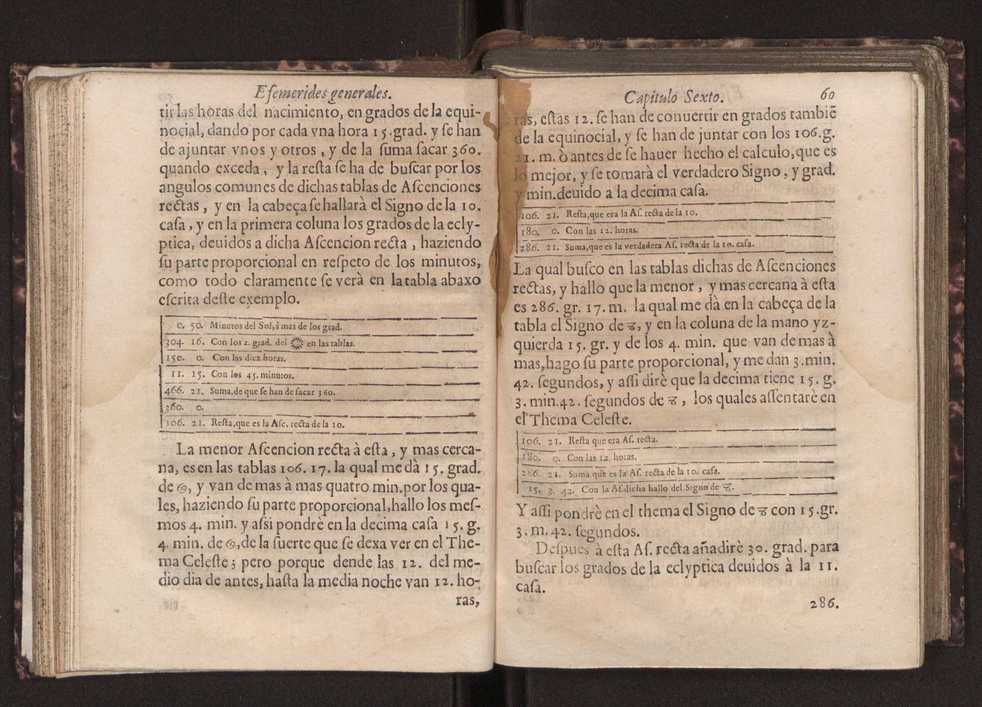 Efemerides generales.
tir las horas del nacimiento, en grados de la equi-
nocial, dando por cada vna hora 15. grad. y ſe han
de ajuntar vnos y otros, y de la ſuma ſacar 360.
quando exceda, y la reſta ſe ha de buſcar por los
angulos comunes de dichas tablas de Aſcenciones
rectas, y en la cabeça ſe hallarà el Signo de la 10.
caſa, y en la primera coluna los grados de la ecly-
ptica, deuidos a dicha Aſcencion recta, haziendo
ſu parte proporcional en reſpeto de los minutos,
como todo claramente ſe verà en la tabla abaxo
eſcrita deſte exemplo.
0. 50. Minutos del Sol, à mas de los grad.
304. 16. Con los 2. grad. del ♒ en las tablas.
150. 0. Con las diez horas.
11. 15. Con los 45. minutos.
466. 21. Suma, de que ſe han de ſacar 360.
360. 0.
106. 21. Reſta, que es la Aſc. recta de la 10.
La menor Aſcencion recta à eſta, y mas cerca-
na, es en las tablas 106. 17. la qual me dà 15. grad.
de ♋, y van de mas à mas quatro min. por los qua-
les, haziendo ſu parte proporcional, hallo los meſ-
mos 4. min. y aſsi pondrè en la decima caſa 15. g.
4. min. de ♋, de la ſuerte que ſe dexa ver en el The-
ma Celeſte; pero porque dende las 12. del me-
dio dia de antes, haſta la media noche van 12. ho-
ras,
Capitulo Sexto. 60
ras, eſtas 12. ſe han de conuertir en grados tambiẽ
de la equinocial, y ſe han de juntar con los 106. g.
21. m. ò antes de ſe hauer hecho el calculo, que es
lo mejor, y ſe tomarà el verdadero Signo, y grad.
y min. deuido a la decima caſa.
106. 21. Reſta, que era la Aſ. recta de la 10.
180. 0. Con las 12. horas.
286. 21. Suma, que es la verdadera Aſ. recta de la 10. caſa.
La qual buſco en las tablas dichas de Aſcenciones
rectas, y hallo que la menor, y mas cercana à eſta
es 286. gr. 17. m. la qual me dà en la cabeça de la
tabla el Signo de ♑, y en la coluna de la mano yz-
quierda 15. gr. y de los 4. min. que van de mas à
mas, hago ſu parte proporcional, y me dan 3. min.
42. ſegundos, y aſſi dirè que la decima tiene 15. g.
3. min. 42. ſegundos de ♑, los quales aſſentarè en
el Thema Celeſte.
106. 21. Reſta que era Aſ. recta.
180. 0. Con las 12. horas.
286. 21. Suma que es la Aſ. recta de la 10. caſa.
15. 3. 42. Con la Aſ. dicha hallo del Signo de ♑.
Y aſſi pondrè en el thema el Signo de ♑ con 15. gr.
3. m. 42. ſegundos.
Deſpues à eſta Aſ. recta añadirè 30. grad. para
buſcar los grados de la eclyptica deuidos à la 11.
caſa.
286.